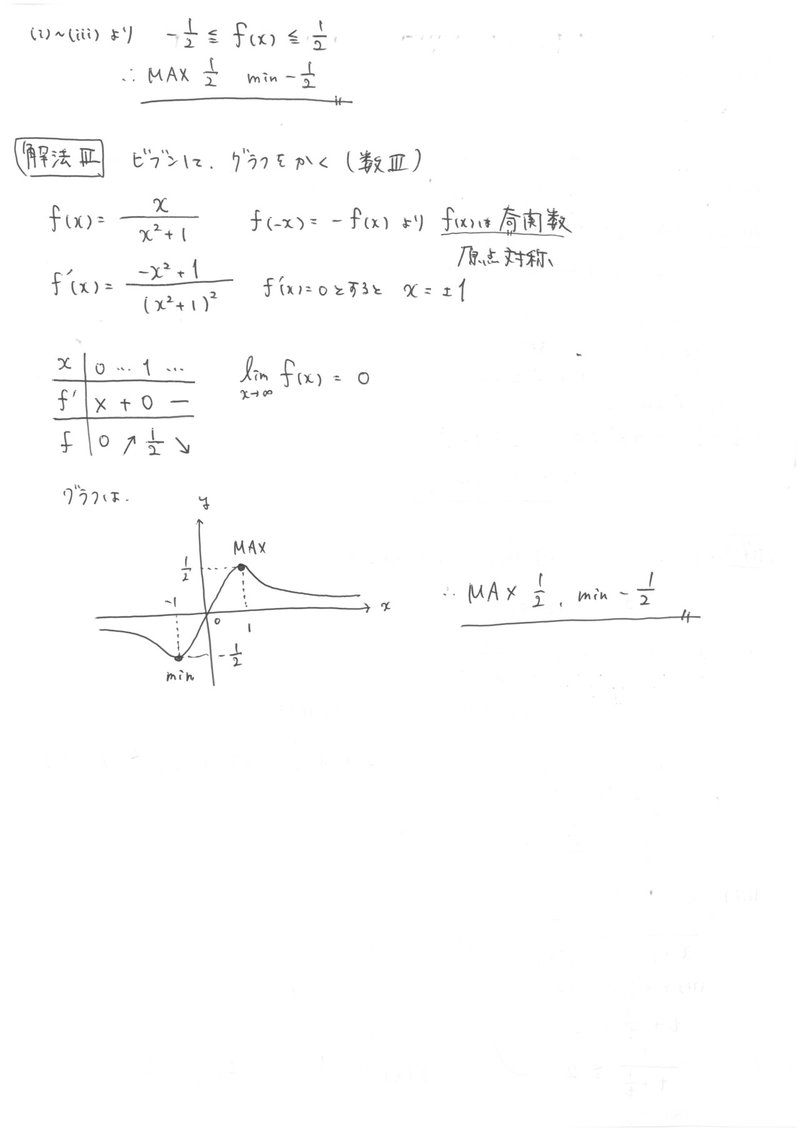 (i)~(iii) より -1/2 ≦ f(x) ≦ 1/2
∴ MAX 1/2 min -1/2
解法Ⅲ ビブンして、グラフをかく (数Ⅲ)
f(x) = x/(x²+1) f(-x) = -f(x) より f(x)は奇関数
原点対称、
f'(x) = (-x²+1)/(x²+1)² f'(x)=0とすると x = ±1
x 0 … 1 …
f' × + 0 −
f 0 ↗ 1/2 ↘
lim x→∞ f(x) = 0
グラフは、
y
MAX
1/2
-1
0
1
x
-1/2
min
∴ MAX 1/2, min -1/2